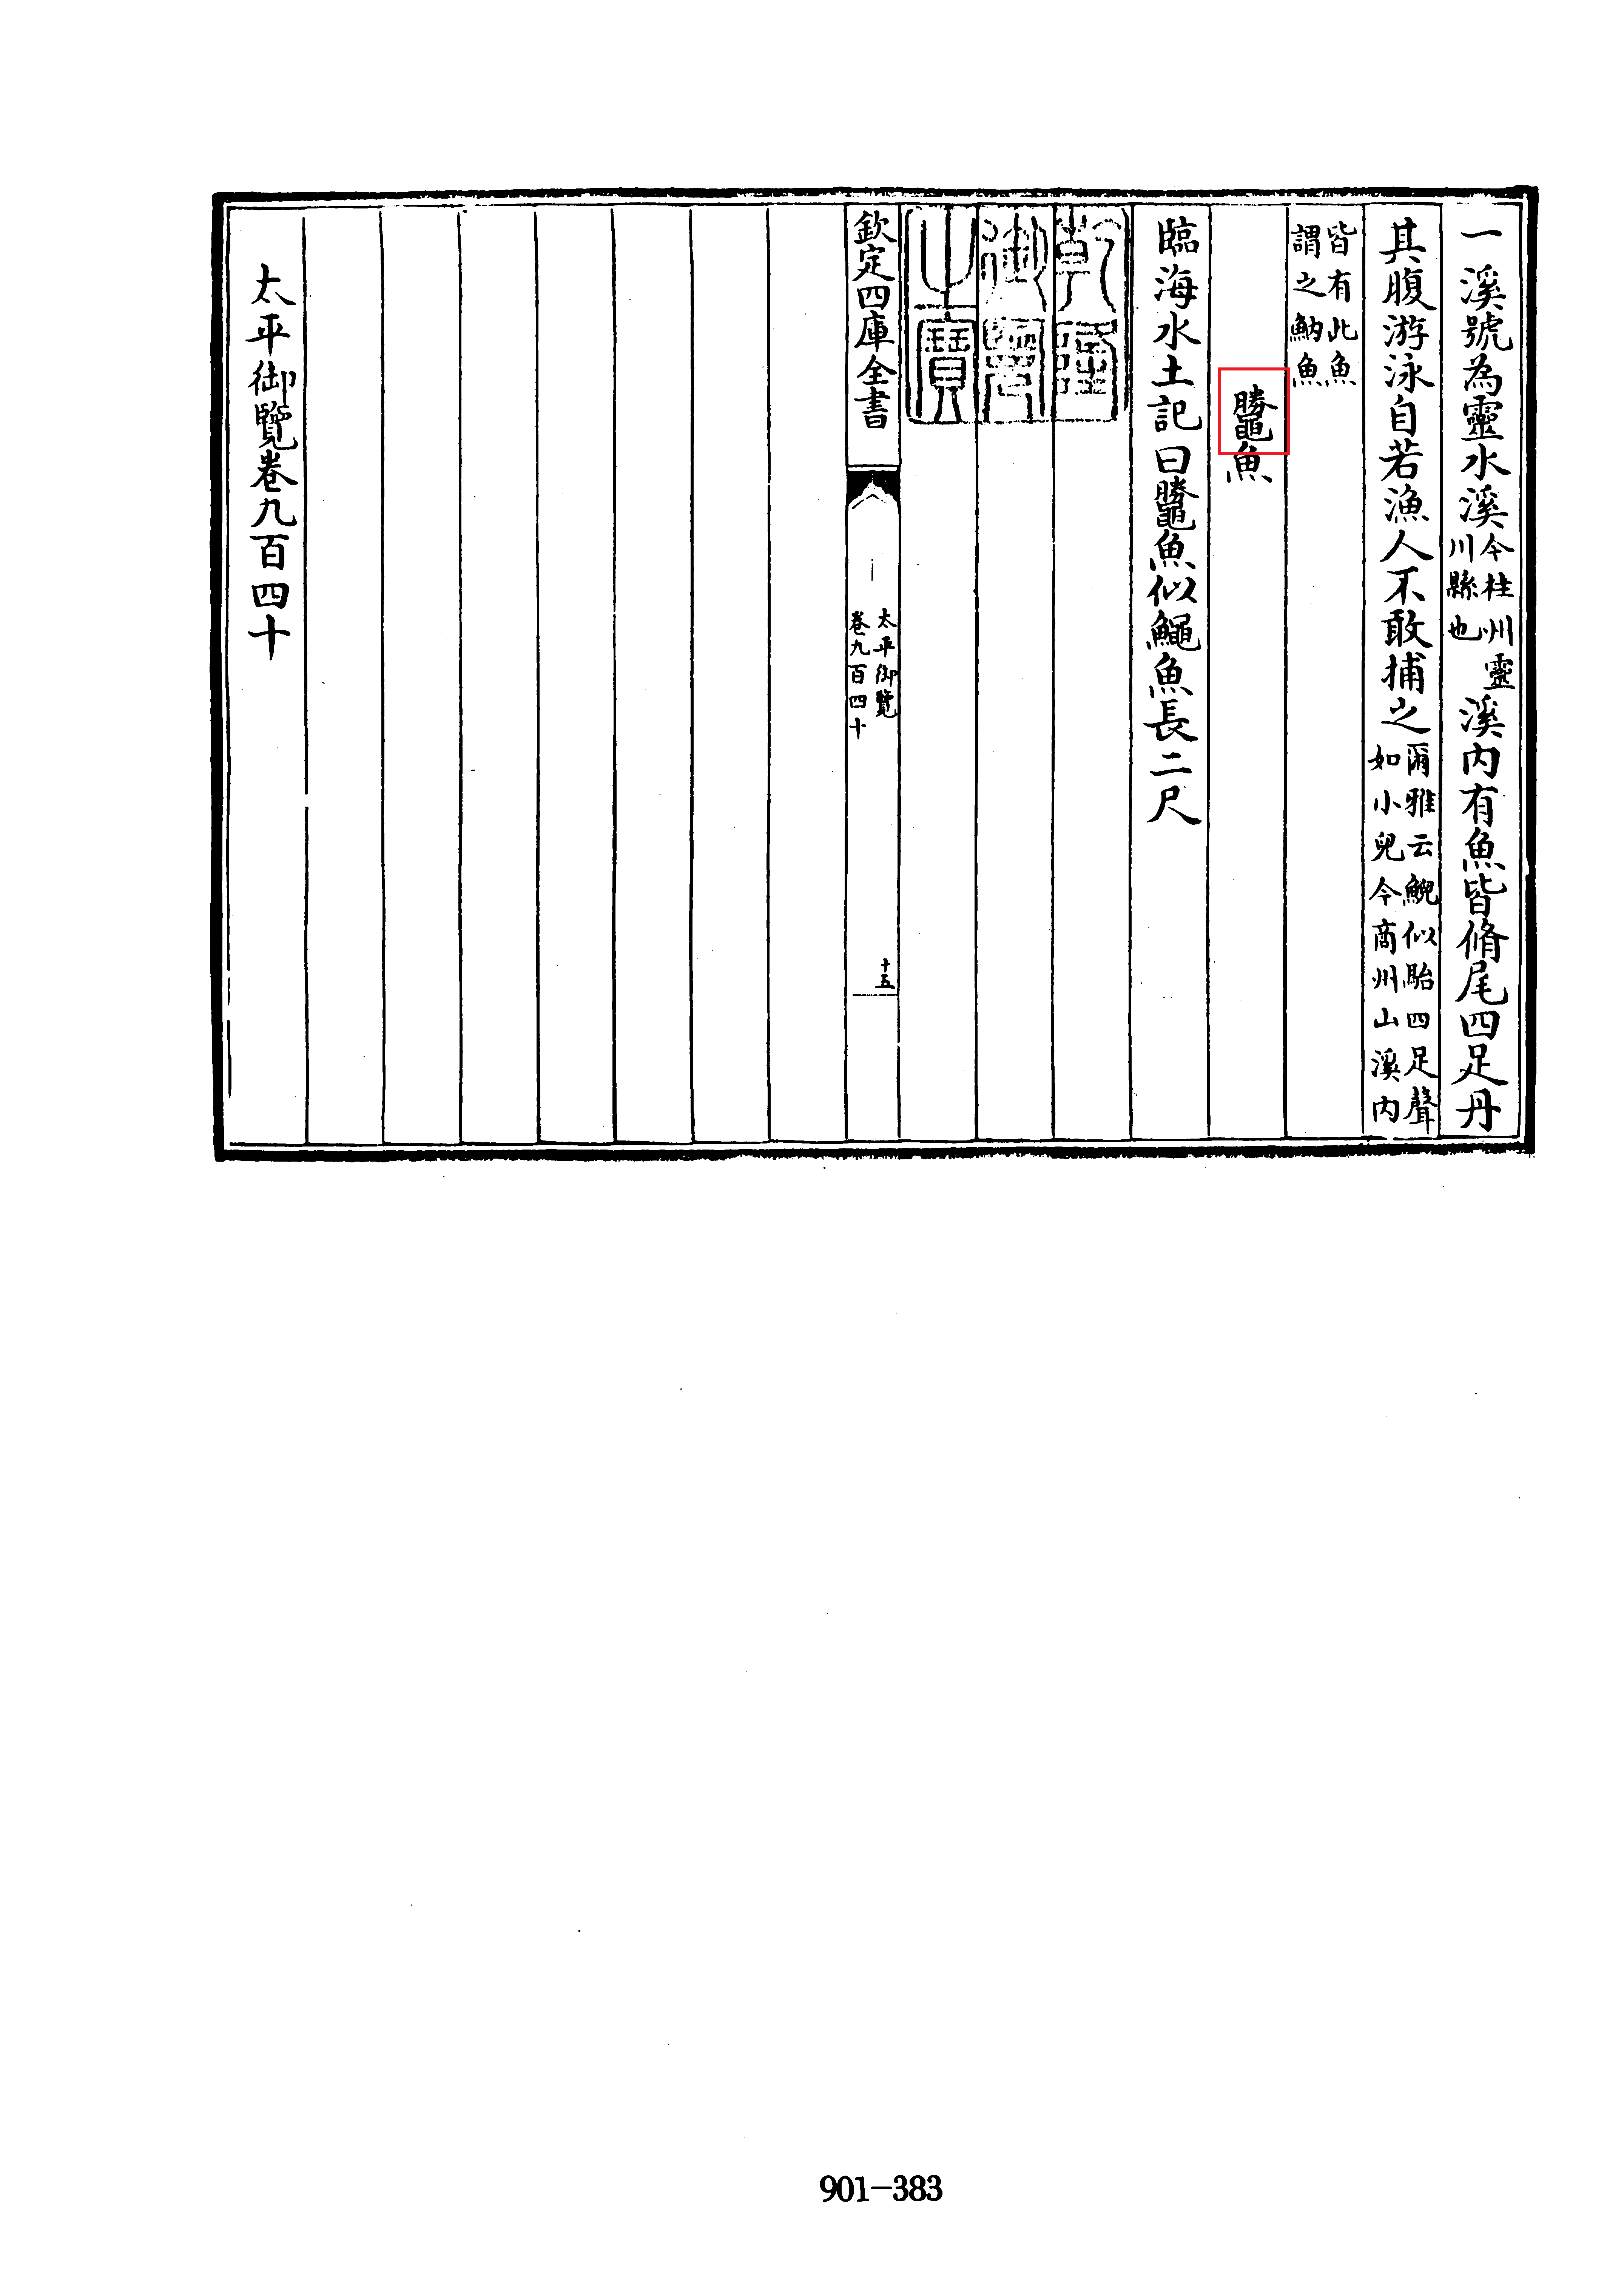 一溪號為靈水溪今桂州靈川縣也溪内有魚皆脩尾四足丹
其腹游泳自若漁人不敢捕之爾雅云鯢似鮐四足聲如小兒今商州山溪内
皆有此魚謂之魶魚
魚
臨海水土記曰魚似鱦魚長二尺
乾隆
御覽
之寶
欽定四庫全書
太平御覽
卷九百四十
十五
太平御覽卷九百四十
901-383